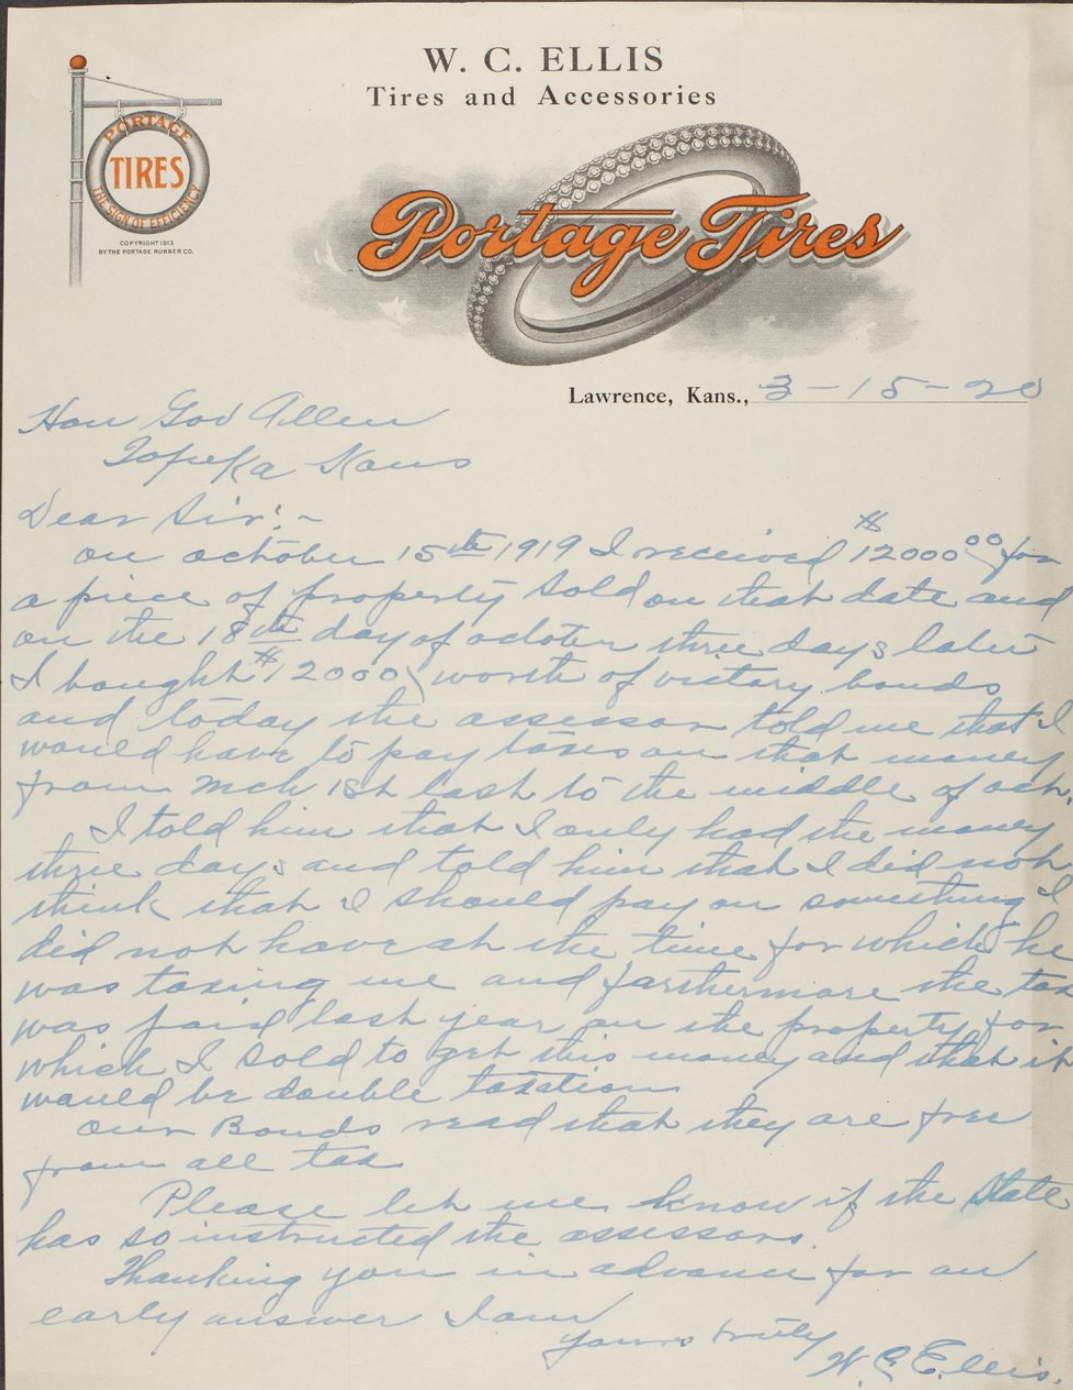 W. C. ELLIS
Tires and Accessories
PORTAGE
TIRES
THE SIGN OF EFFICIENCY
COPYRIGHT 1913
BY THE PORTAGE RUBBER CO.
Portage Tires
Lawrence, Kans., 3-15-20
Hon Gov Allen
Topeka Kans
Dear Sir:-
on october 15th 1919 I received $12000 00 for
a piece of property sold on that date and
on the 18th day of october three days later
I bought $12000 worth of victory bonds
and today the assessor told me that I
would have to pay taxes on that money
from Mch 1st last to the middle of oct.
I told him that I only had the money
three days and told him that I did not
think that I should pay on something I
did not have at the time for which he
was taxing me and farthermore the tax
was paid last year on the property for
which I sold to get this money and that it
would be double taxation
our Bonds read that they are free
from all tax
Please let me know if the State
has so instructed the assessors.
Thanking you in advance for an
early answer I am
yours truly
W. C. Ellis.